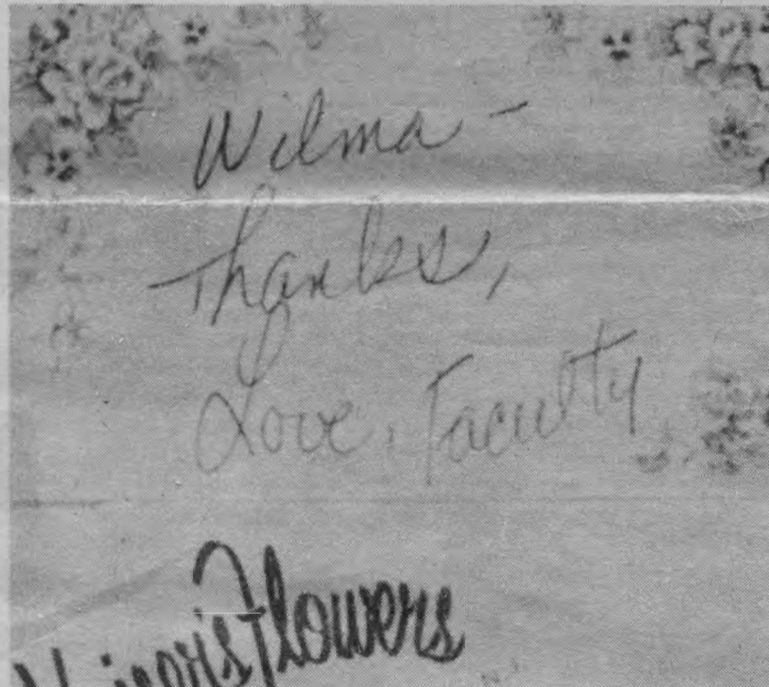 Wilma -
Thanks,
Love, Faculty
Flowers